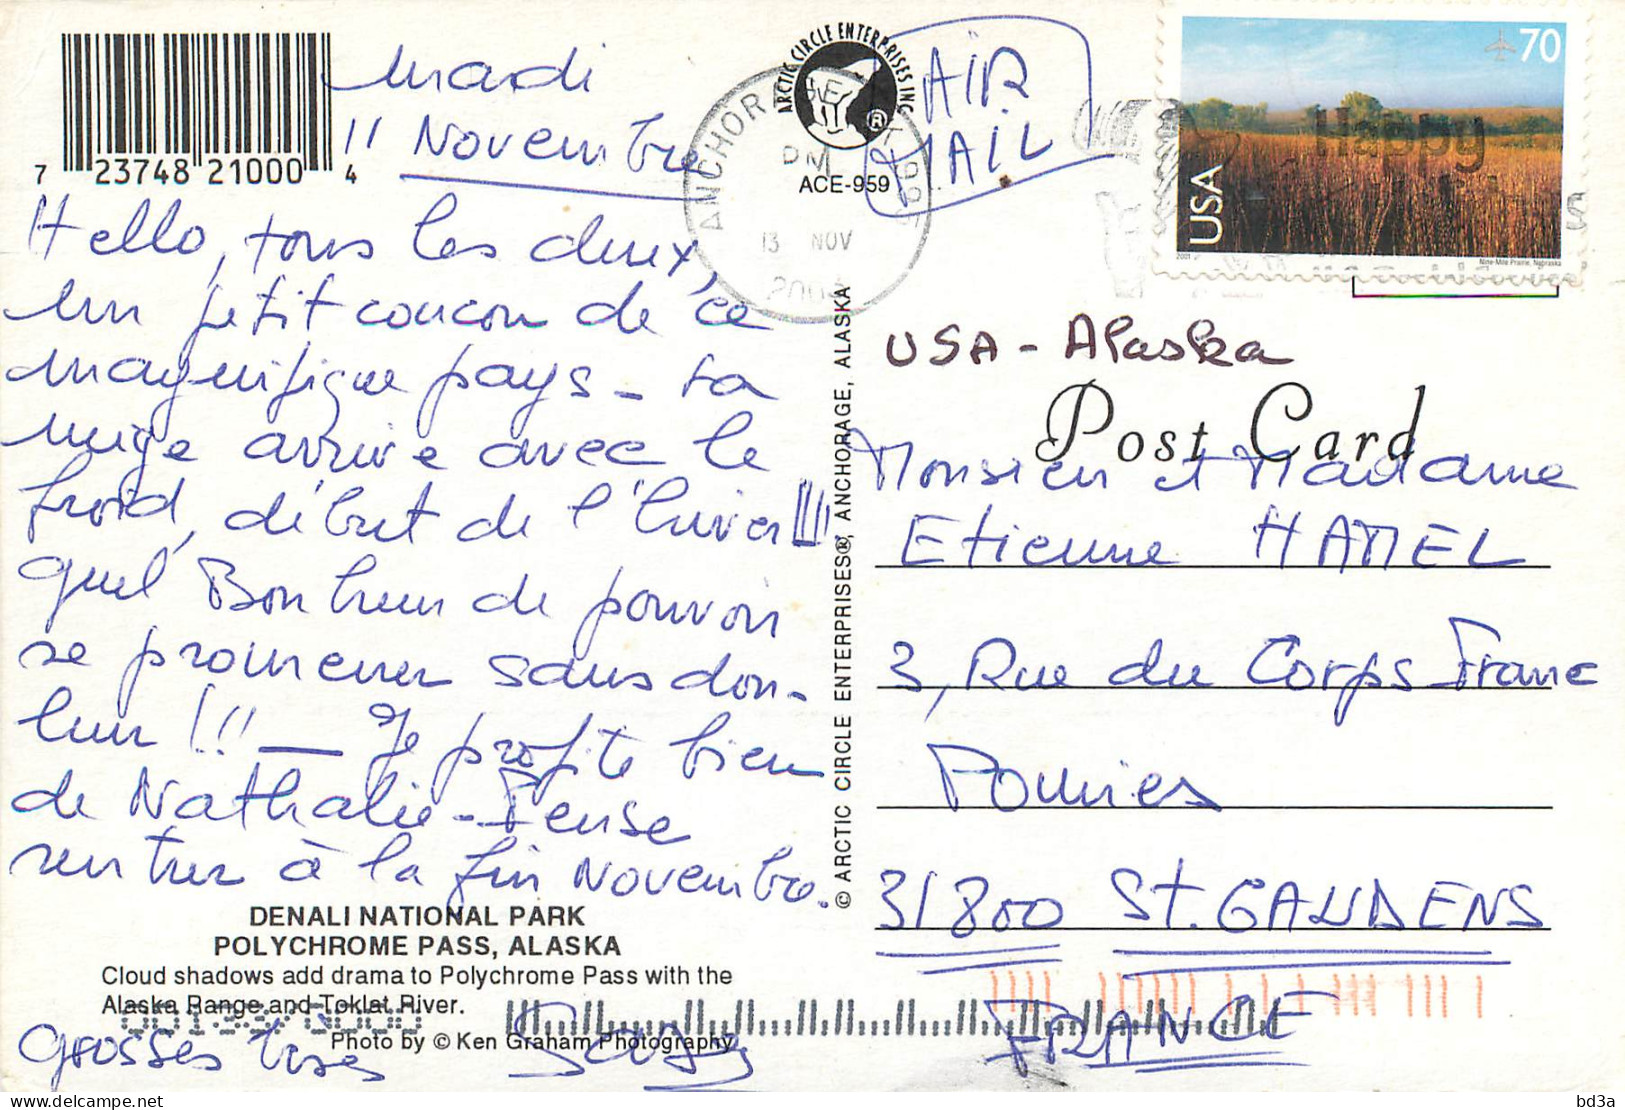 mardi
11 Novembre
Hello, tous les deux,
un petit coucou de ce
magnifique pays - La
neige arrive avec le
froid, début de l'hiver !!!
quel Bonheur de pouvoir
se promener sans dou-
leur !!! — Je profite bien
de Nathalie - Pense
rentrer à la fin Novembre.
Grosses bises
7 23748 21000 4
DENALI NATIONAL PARK
POLYCHROME PASS, ALASKA
Cloud shadows add drama to Polychrome Pass with the
Alaska Range and Toklat River.
Photo by © Ken Graham Photography
© ARCTIC CIRCLE ENTERPRISES®, ANCHORAGE, ALASKA
ARCTIC CIRCLE ENTERPRISES INC
®
ACE-959
PM
13 NOV
AIR
MAIL
70
USA
2001
Nine-Mile Prairie, Nebraska
Happy
USA - Alaska
Post Card
Monsieur et Madame
Etienne HAMEL
3, Rue du Corps Franc
Pomiès
31800 St. GAUDENS
FRANCE
bd3a